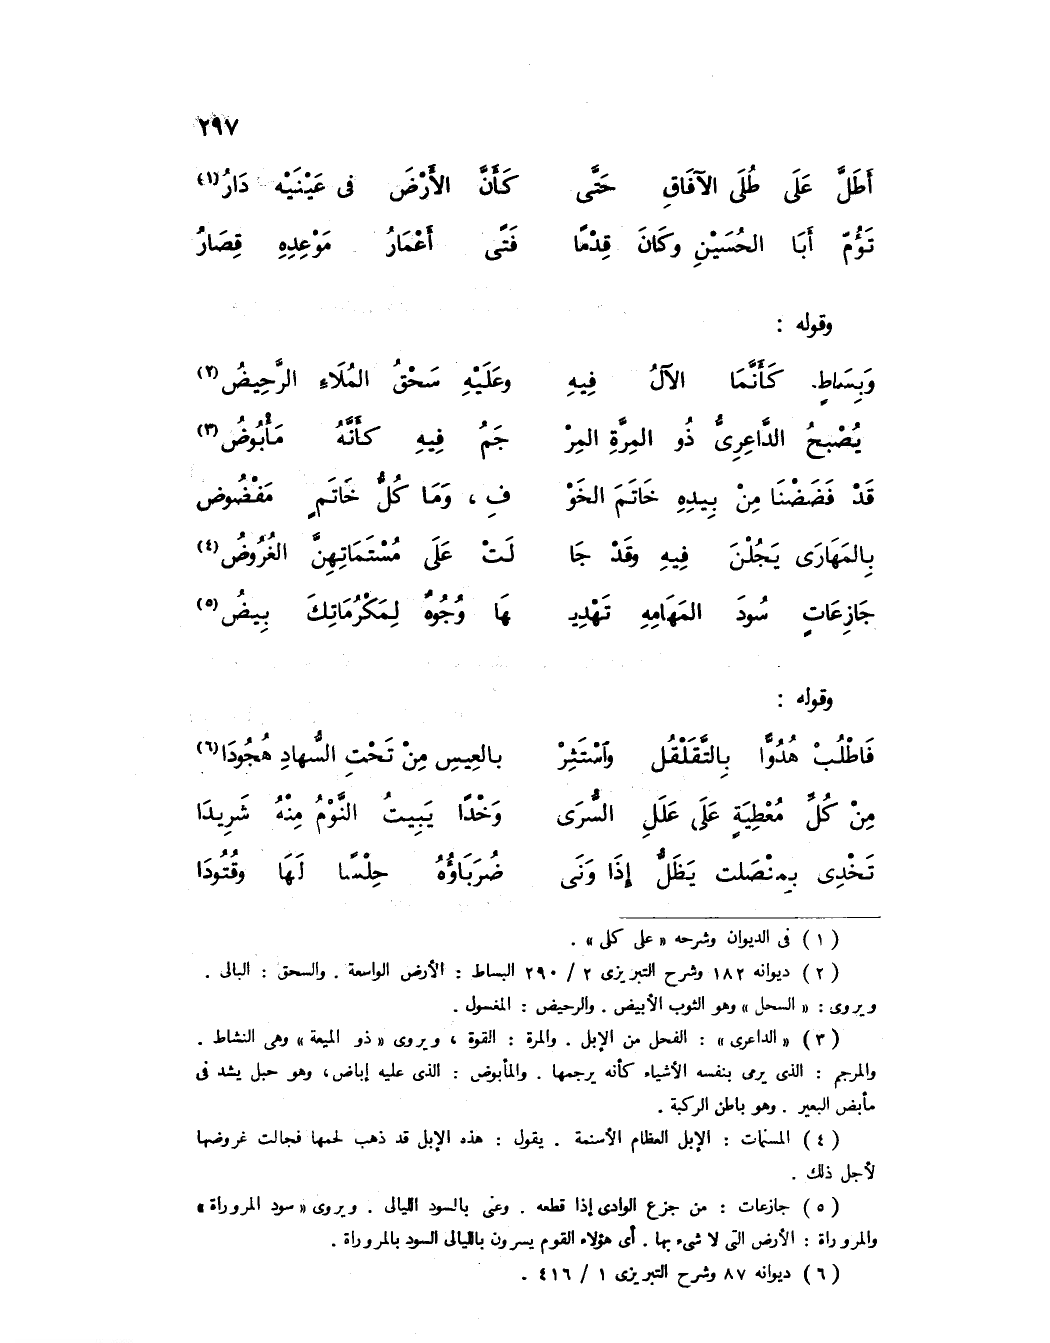 ٢٩٧
أَطَلَّ عَلَى طُلَى الآفَاقِ حَتَّى كَأَنَّ الأَرْضَ فى عَيْنَيْه دَارُ (١)
تَؤُمّ أَبَا الحُسَيْنِ وكَانَ قِدْمًا فَتًى أَعْمَارُ مَوْعِدِهِ قِصَارُ
وقوله :
وَبِسَاطٍ كَأَنَّمَا الآلُ فِيهِ وعَلَيْهِ سَحْقُ المُلَاءِ الرَّحِيضُ (٢)
يُصْبحُ الدَّاعِرِىُّ ذُو المِرَّةِ المِرْ جَمُ فِيهِ كأَنَّهُ مَأْبُوضُ (٣)
قَدْ فَضَضْنَا مِنْ بِيدِهِ خَاتَمَ الخَوْ فِ ، وَمَا كُلُّ خَاتَمٍ مَفْضُوض
بِالمَهَارَى يَجُلْنَ فِيهِ وقَدْ جَا لَتْ عَلَى مُسْنَمَاتِهِنَّ الغُرُوضُ (٤)
جَازِعَاتٍ سُودَ المَهَامِهِ تَهْدِيـ هَا وُجُوهٌ لِمَكْرُمَاتِكَ بِيضُ (٥)
وقوله :
فَاطْلُبْ هُدُوًّا بِالتَّقَلْقُل وآسْتَثِرْ بالعِيسِ مِنْ تَحْتِ السُّهادِ هُجُودَا (٦)
مِنْ كُلِّ مُعْطِيَةٍ عَلَى عَلَلِ السُّرَى وَخْدًا يَبِيتُ النَّوْمُ مِنْهُ شَرِيدَا
تَخْدِى بِمنْصَلت يَظَلُّ إِذَا وَنَى ضُرَبَاؤُهُ حِلْسًا لَهَا وقُتُودَا
( ١ ) فى الديوان وشرحه « على كلى » .
( ٢ ) ديوانه ١٨٢ وشرح التبريزى ٢ / ٢٩٠ البساط : الأرض الواسعة . والسحق : البالى .
ويروى : « السحل » وهو الثوب الأبيض . والرحيض : المغسول .
( ٣ ) « الداعرى » : الفحل من الإبل . والمرة : القوة ، ويروى « ذو الميعة » وهى النشاط .
والمرجم : الذى يرمى بنفسه الأشياء كأنه يرجمها . والمأبوض : الذى عليه إباض، وهو حبل يشد فى
مأبض البعير . وهو باطن الركبة .
( ٤ ) المسنمات : الإبل العظام الأسنمة . يقول : هذه الإبل قد ذهب لحمها فجالت غروضها
لأجل ذلك .
( ٥ ) جازعات : من جزع الوادى إذا قطعه . وعنى بالسود الليالى . ويروى « سود المروراة »
والمروراة : الأرض التى لا شىء بها . أى هؤلاء القوم يسرون بالليالى السود بالمروراة .
( ٦ ) ديوانه ٨٧ وشرح التبريزى ١ / ٤١٦ .